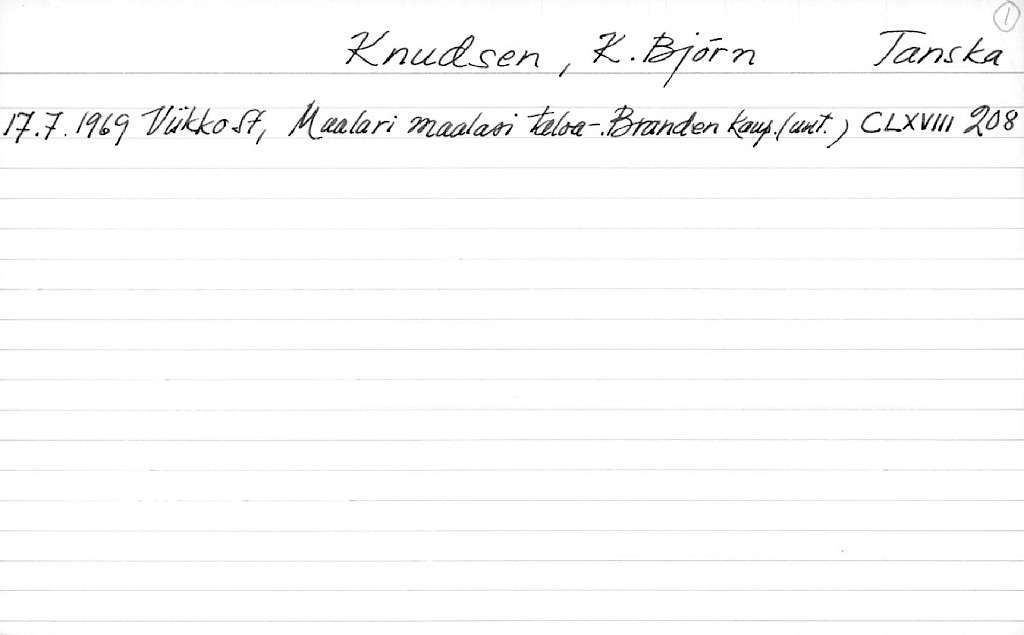 1
Knudsen, K. Björn Tanska
17.7.1969 Viikko Sf, Maalari maalasi taloa-. Branden kaup. (unt.) CLXVIII 208